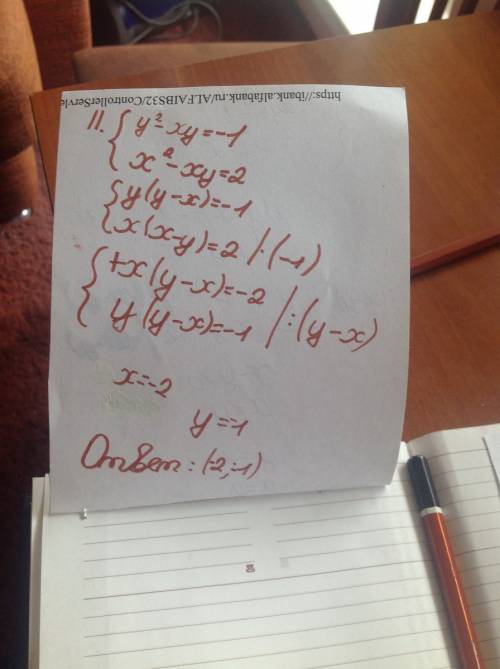 https://ibank.alfabank.ru/ALFAIBS32/ControllerServle
11. { y² - xy = -1
x² - xy = 2
{ y(y-x) = -1
x(x-y) = 2 /·(-1)
{ +x(y-x) = -2
y(y-x) = -1 /:(y-x)
x = -2
y = -1
Ответ: (-2; -1)